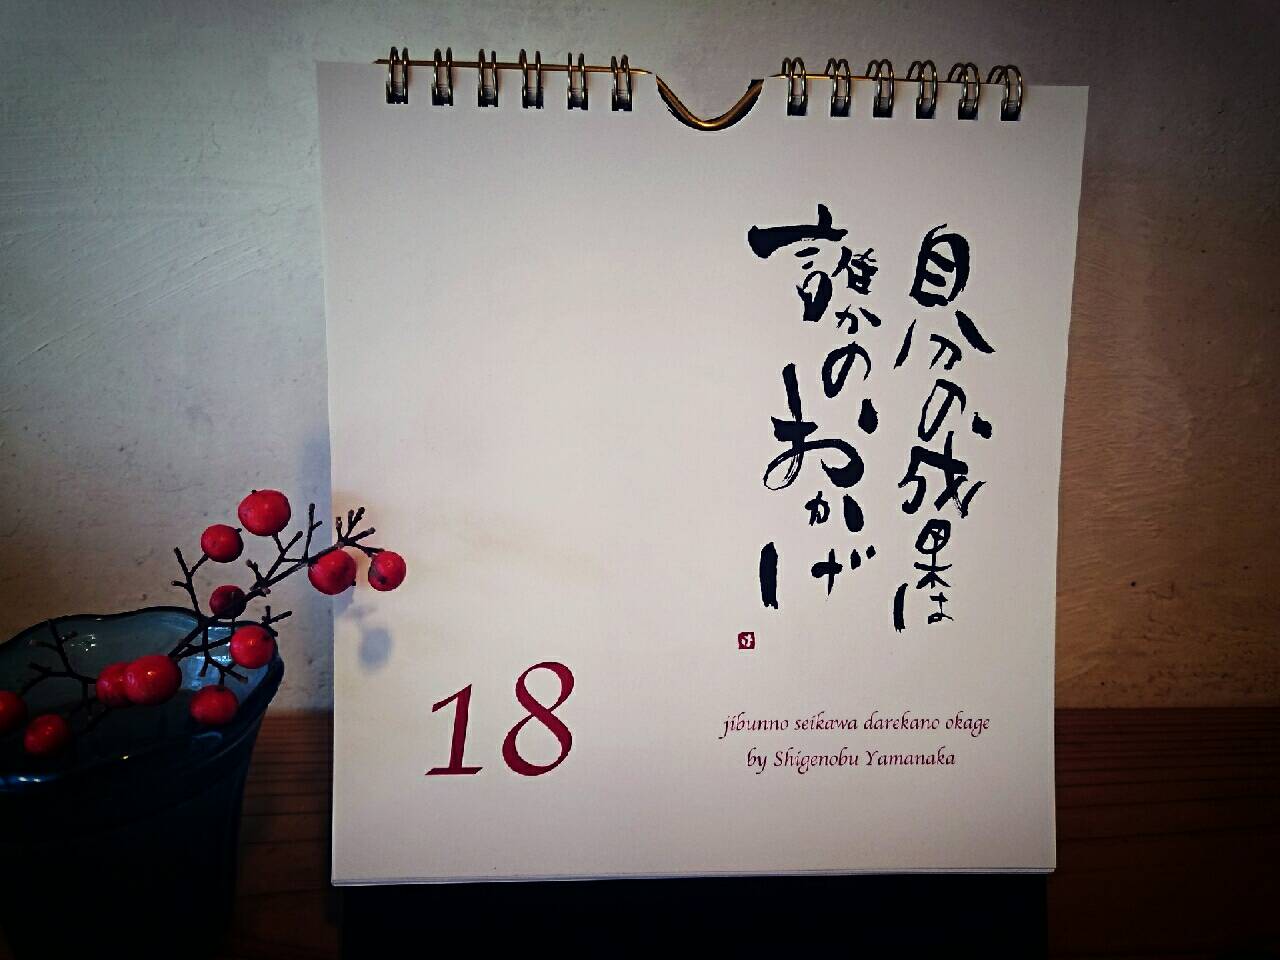 自分の成果は
誰かのおかげ
18
jibunno seikawa darekano okage
by Shigenobu Yamanaka